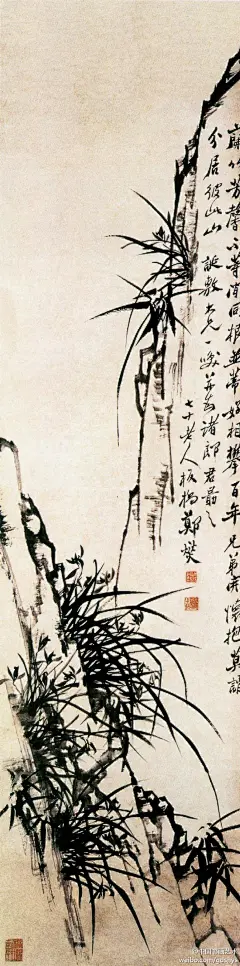 蘭竹芳馨不等閒同根並蒂好相攀百年兄弟開懷抱莫謂
分居彼此山 誕敷大兄一笑并示諸郎君
七十老人板橋鄭燮